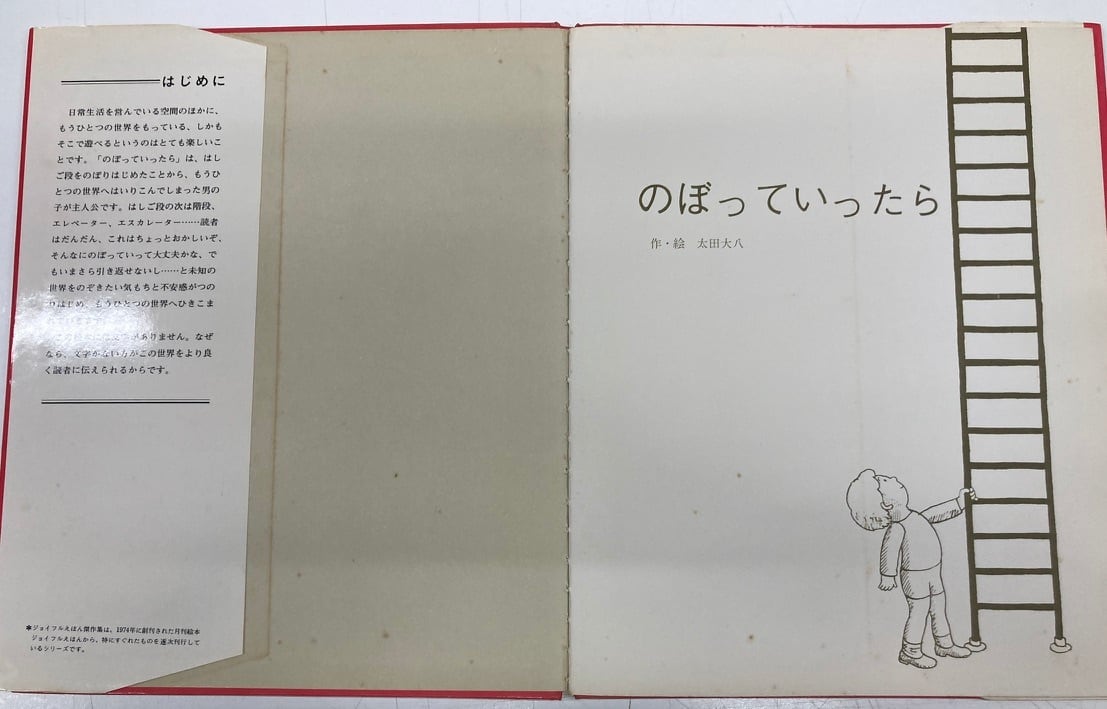 はじめに
日常生活を営んでいる空間のほかに、
もうひとつの世界をもっている、しかも
そこで遊べるというのはとても楽しいこ
とです。「のぼっていったら」は、はし
ご段をのぼりはじめたことから、もうひ
とつの世界へはいりこんでしまった男の
子が主人公です。はしご段の次は階段、
エレベーター、エスカレーター……読者
はだんだん、これはちょっとおかしいぞ、
そんなにのぼっていって大丈夫かな、で
もいまさら引き返せないし……と未知の
世界をのぞきたい気もちと不安感がつの
りはじめ、もうひとつの世界へひきこま
がありません。なぜ
なら、文字がない方がこの世界をより良
く読者に伝えられるからです。
＊ジョイフルえほん傑作集は、1974年に創刊された月刊絵本
ジョイフルえほんから、特にすぐれたものを逐次刊行して
いるシリーズです。
のぼっていったら
作・絵　太田大八